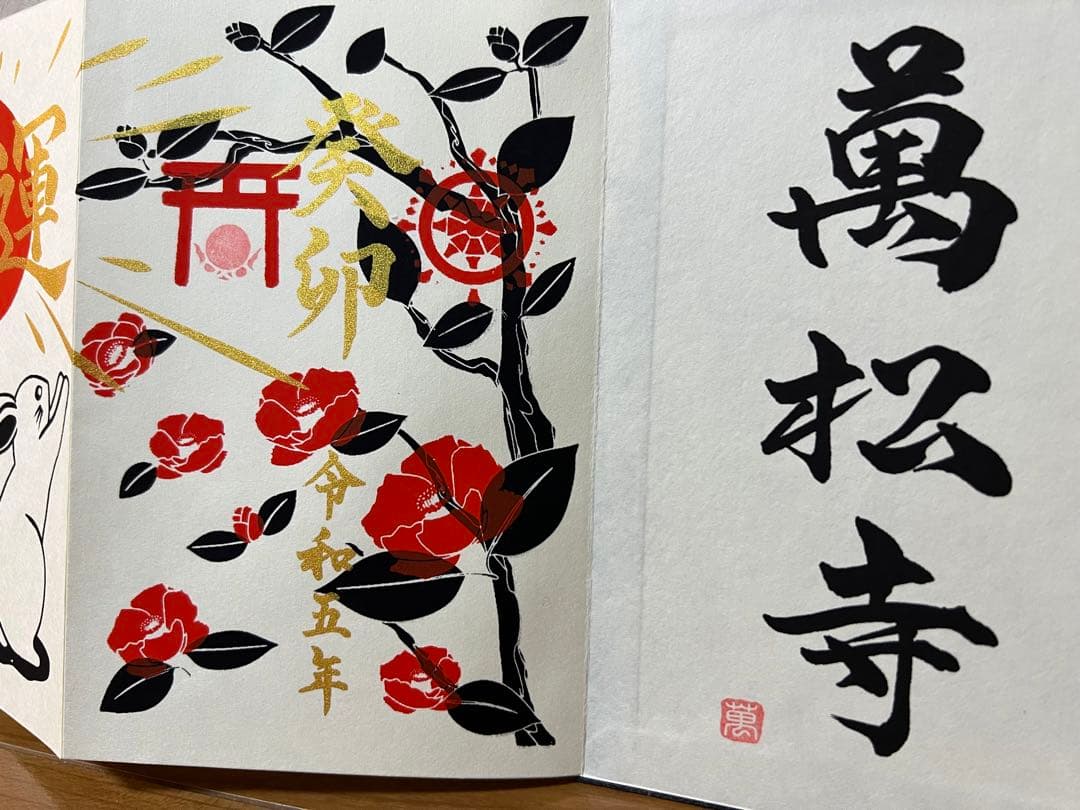 萬松寺
萬
癸卯
令和五年
運